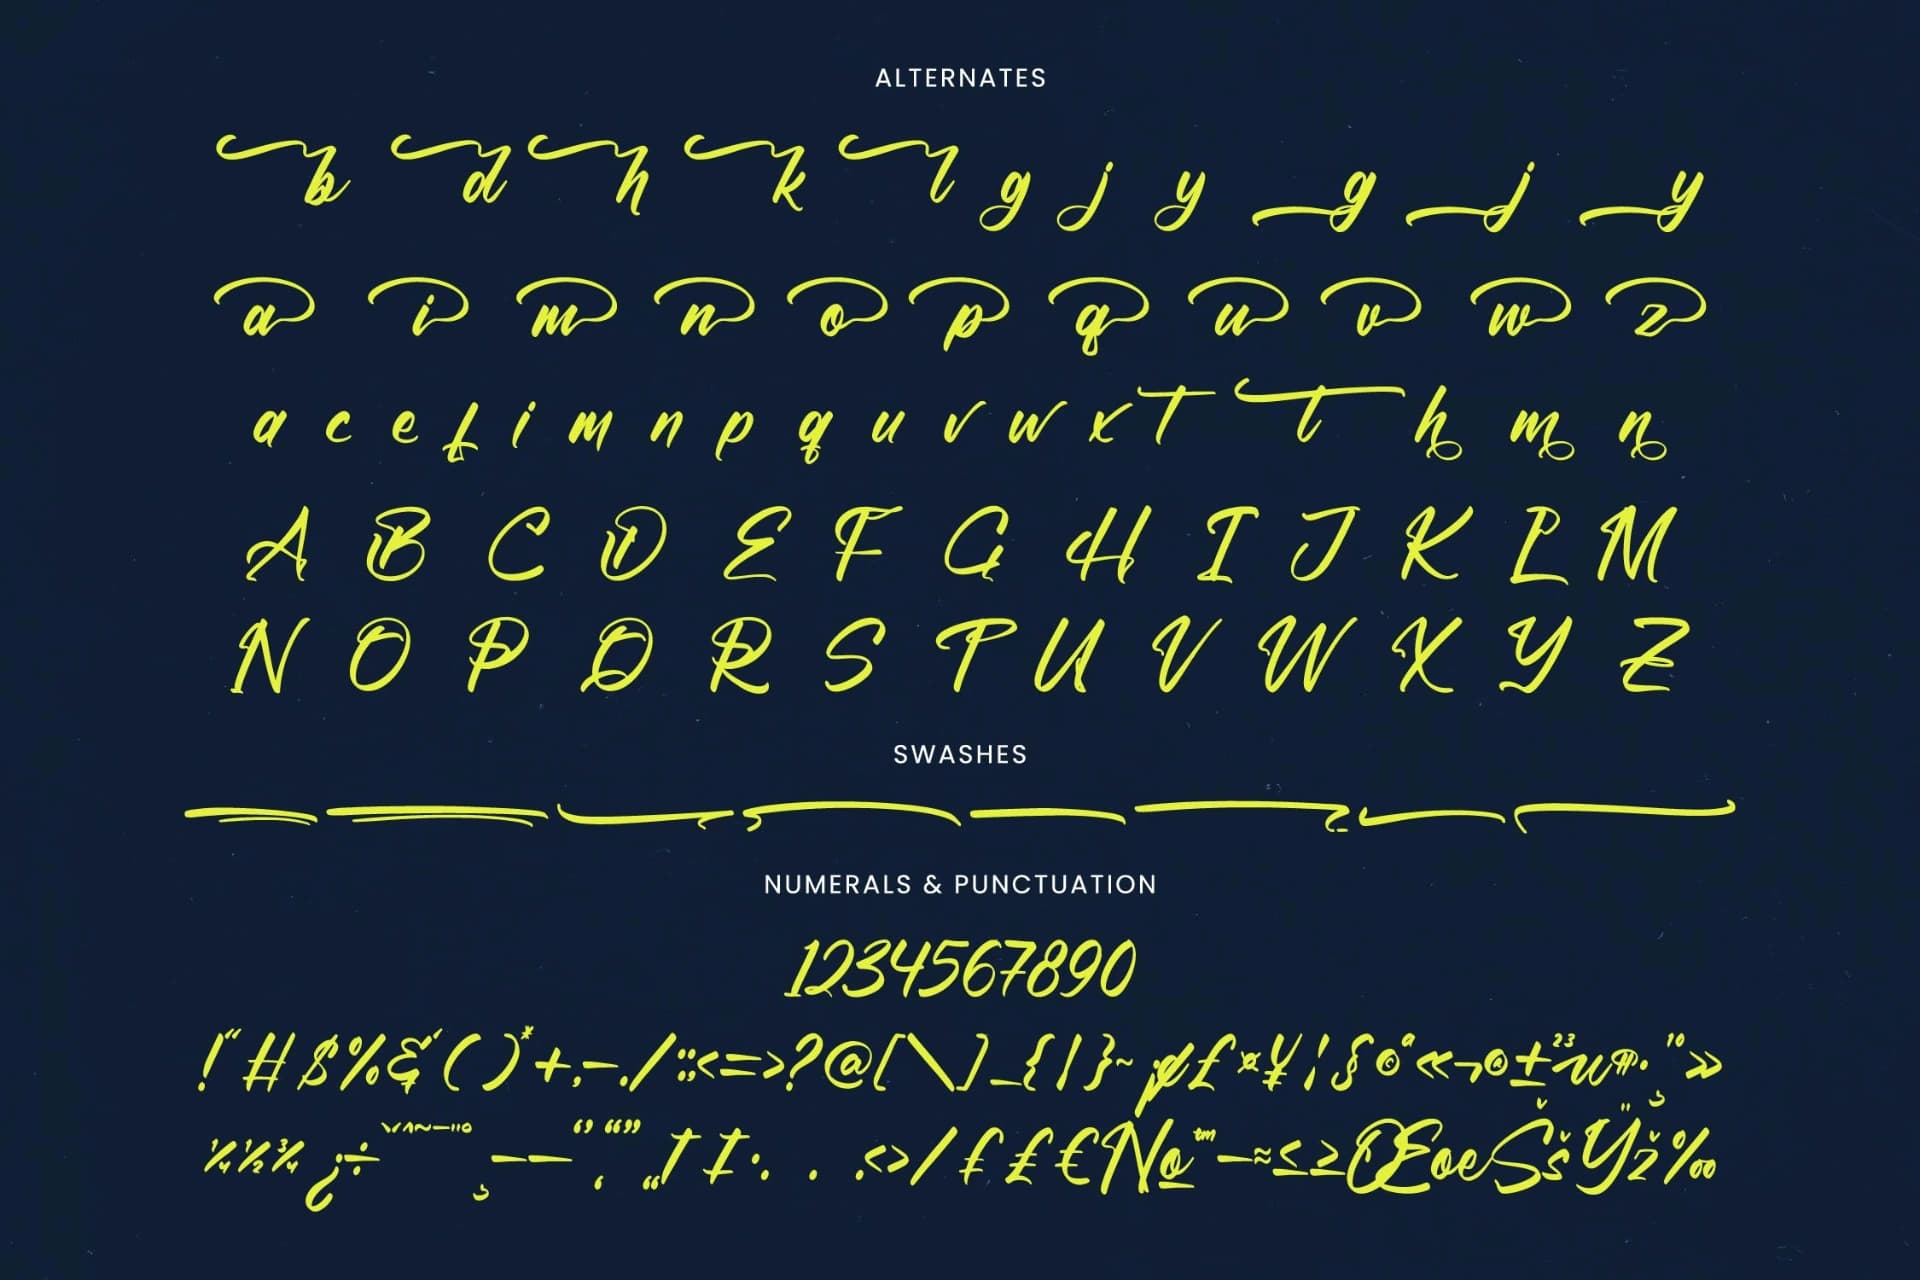 ALTERNATES
b d h k l g j y g j y
a i m n o p q u v w z
a c e f i m n p q u v w x T T h m n
A B C D E F G H I J K L M
N O P Q R S T U V W X Y Z
SWASHES
NUMERALS & PUNCTUATION
1234567890
!"#$%&'()*+,-./:;<=>?@[\]_{|}~¡¢£¤¥¦§©ª«¬®±²³µ¶·¸¹º»
¼½¾¿÷ˇ^~¯ –— ‘’‚“”„†‡•…‹›/₣₤€№™−≈≤≥ŒœŠšŸž‰